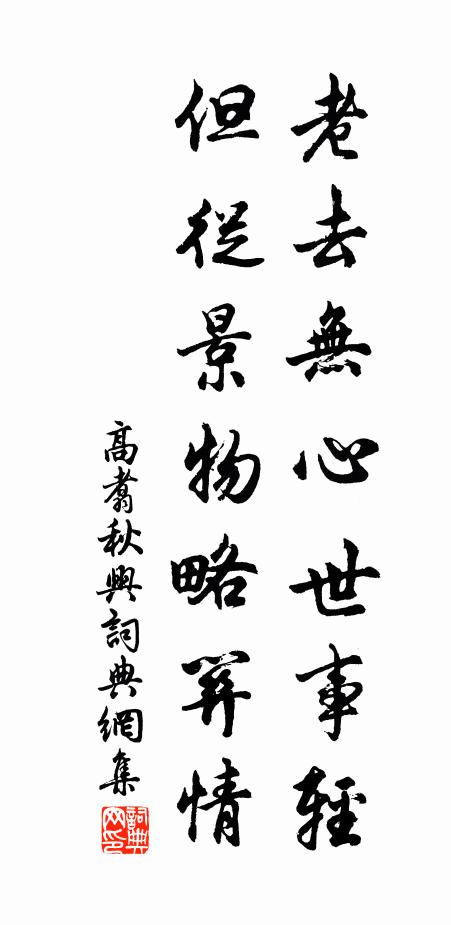 老去無心世事輕
但從景物略關情
高翥秋興詞典網集
詞典网印